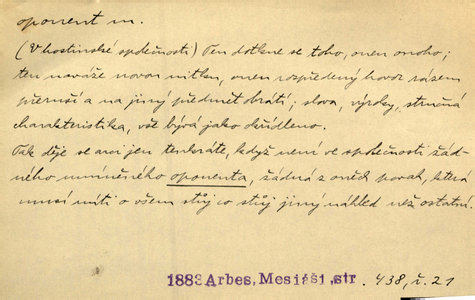 oponent m.
(V hostinské společnosti) Ten dotkne se toho, onen onoho;
ten naváže novou nitku, onen rozpředený hovor rázem
přeruší a na jiný předmět obrátí; slova, výroky, stručná
charakteristika, vše bývá jako okřídleno.
Tak děje se arci jen tenkráte, když není ve společnosti žád-
ného umíněného oponenta, žádná z oněch povah, která
musí míti o všem stůj co stůj jiný náhled než ostatní.
1883 Arbes, Mesiáš1, str. 438, ř. 21